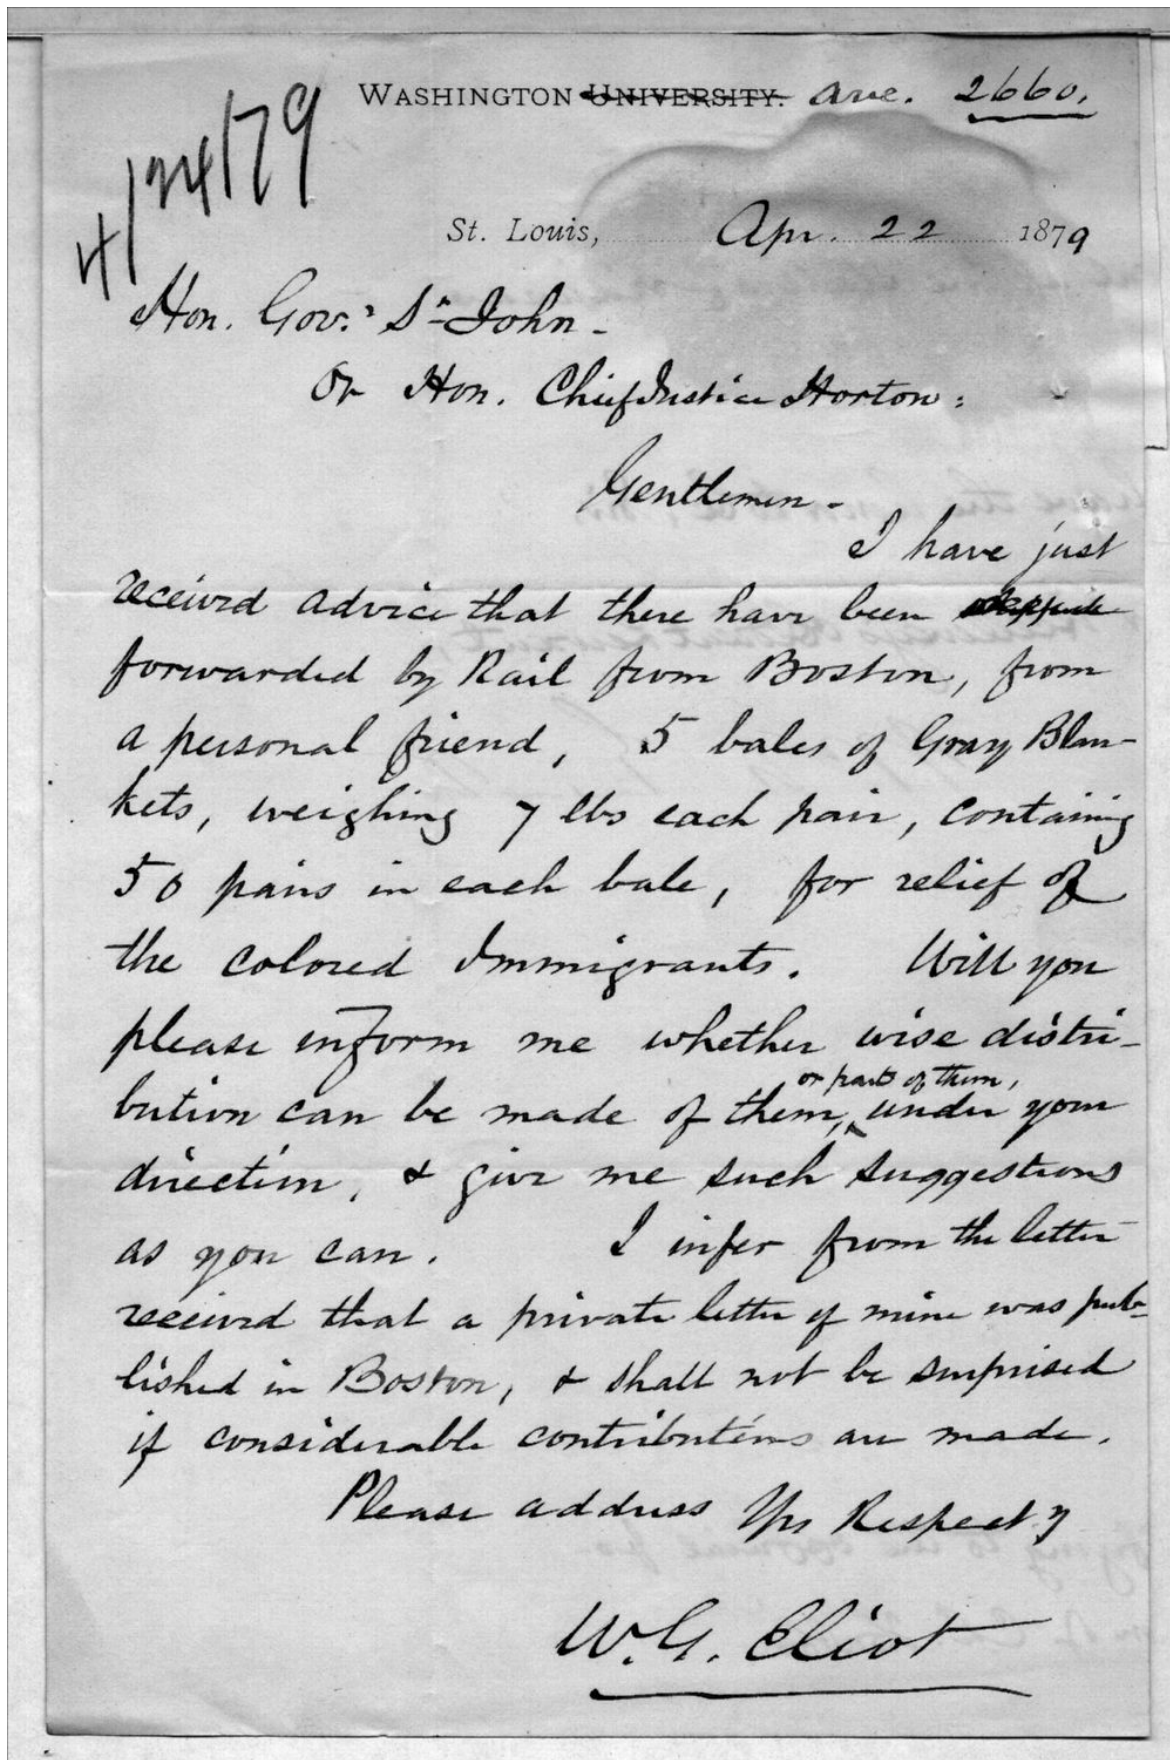 WASHINGTON UNIVERSITY. Ave. 2660.
4/24/79
St. Louis, Apr. 22 1879
Hon. Gov.r St John -
Or Hon. Chief Justice Horton:
Gentlemen -
I have just
received advice that there have been
forwarded by Rail from Boston, from
a personal friend, 5 bales of Gray Blan-
kets, weighing 7 lbs each pair, containing
50 pairs in each bale, for relief of
the colored Immigrants. Will you
please inform me whether wise distri-
or part of them,
bution can be made of them, under your
direction, & give me such suggestions
as you can. I infer from the letter
received that a private letter of mine was pub-
lished in Boston, & shall not be surprised
if considerable contributions are made.
Please address Yrs Respect'y
W. G. Eliot